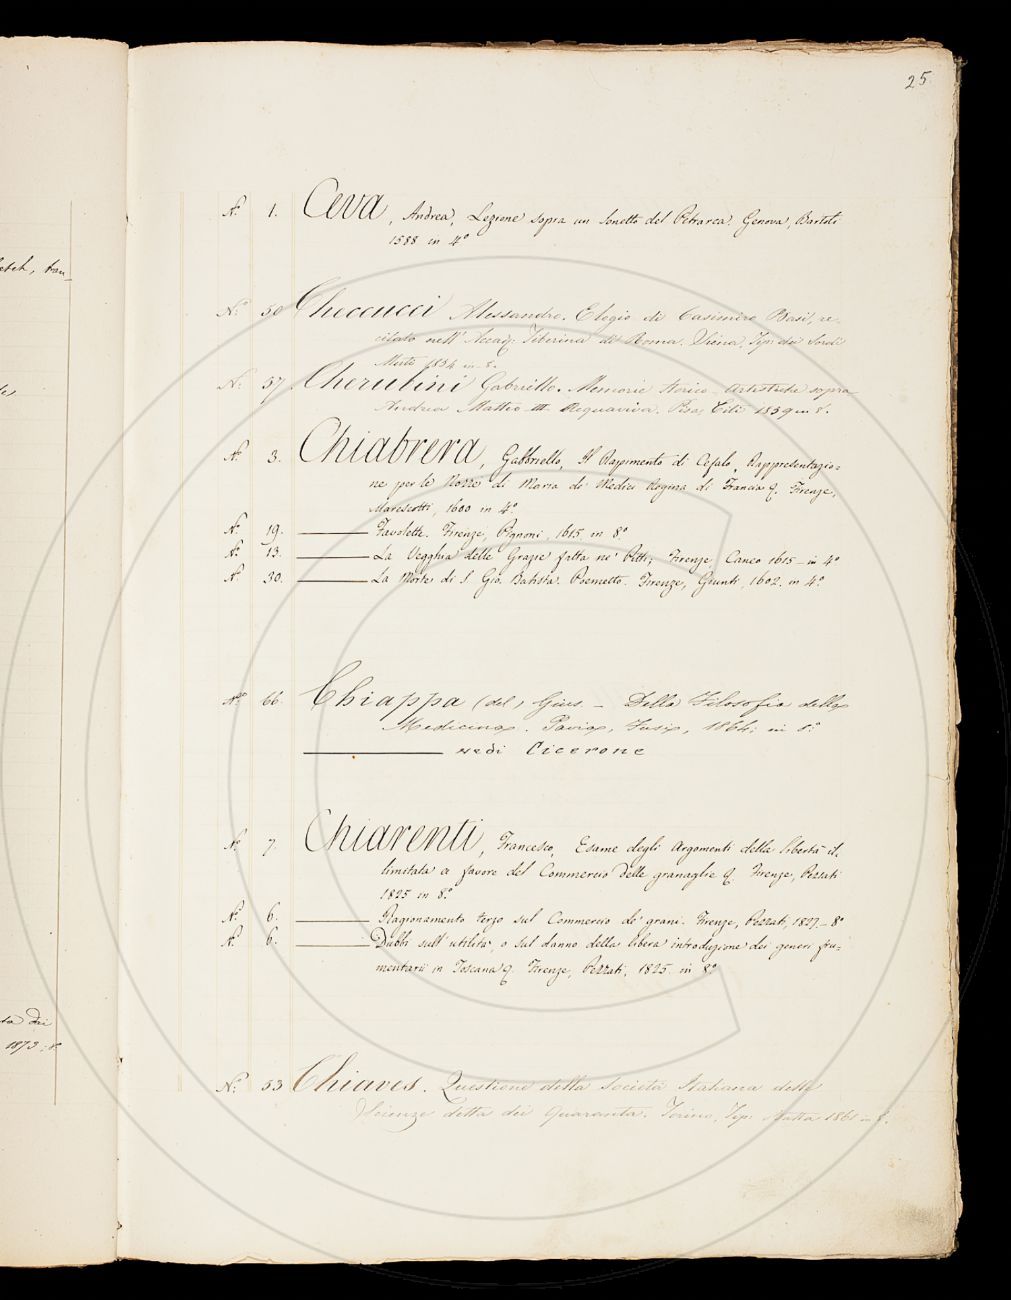 25
N.° 1. Ceva, Andrea, Lezione sopra un Sonetto del Petrarca. Genova, Bartoli
1588 in 4°
N.° 50 Checcucci Alessandro. Elogio di Casimiro Basi, re-
citato nell' Accad. Tiberina di Roma. Siena, Tip. dei Sordi
Muti 1854 in 8.
N.° 57 Cherubini Gabriello. Memorie storico artistiche sopra
Andrea Matteo III Acquaviva. Pisa, Citi 1859 in 8°.
N.° 3. Chiabrera, Gabbriello, Il Rapimento di Cefalo, Rappresentazio=
ne per le Nozze di Maria de' Medici Regina di Francia &. Firenze,
Marescotti, 1600 in 4°.
N.° 19. Favolette. Firenze, Pignoni, 1615 in 8°
N.° 13. La Vegghia delle Grazie fatta ne' Pitti, Firenze, Caneo 1615 - in 4°
N.° 30. La Morte di S. Gio. Batista. Poemetto. Firenze, Giunti, 1602. in 4°.
N.° 66. Chiappa (del) Gius. - Della Filosofia della
Medicina. Pavia, Fusi, 1864; in 8.°
vedi Cicerone
N.° 7. Chiarenti, Francesco, Esame degli Argomenti della libertà il-
limitata a favore del Commercio delle granaglie &. Firenze, Pezzati
1825 in 8°.
N.° 6. Ragionamento terzo sul Commercio de' grani. Firenze, Pezzati, 1827. - 8°
N.° 6. Dubbi sull' utilità, o sul danno della libera introduzione dei generi fru=
mentarii in Toscana &. Firenze, Pezzati, 1825 in 8°.
N.° 53 Chiaves. Questione della Società Italiana delle
Scienze detta dei Quaranta. Torino, Tip. 1861 in 8.
1873